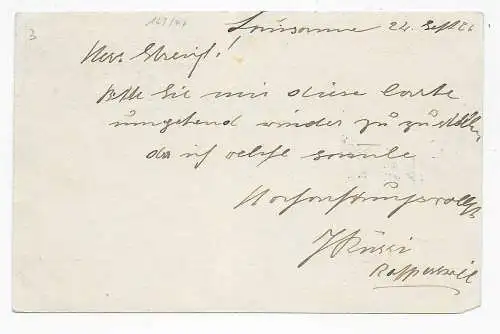 3 163/44
Lausanne 24. Sept 26
Herr Streift!
Bitte Sie mir diese Carte
umgehend wieder zu zustellen
da ich selbst sam̅le.
Hochachtungsvollst
J Rüssi
Rapperswil